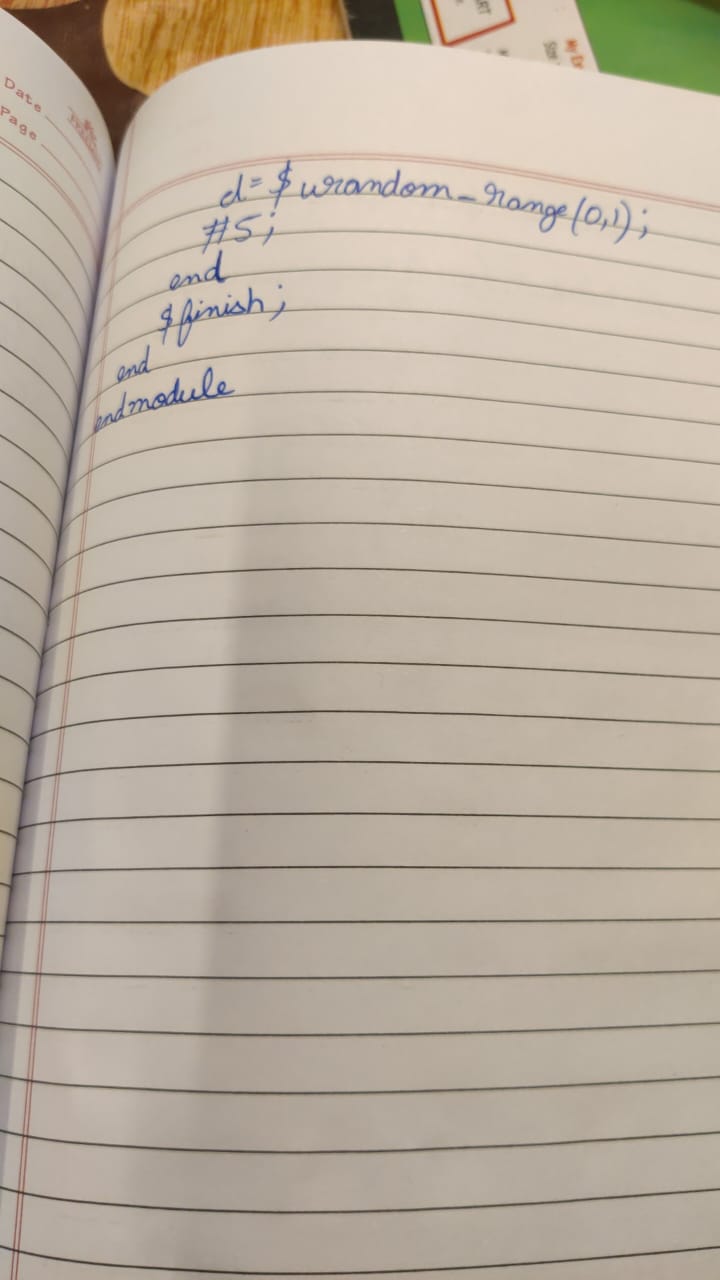 Date
Page
ART
My Ex
Size
d=$urandom_range(0,1);
#5;
end
$finish;
end
endmodule